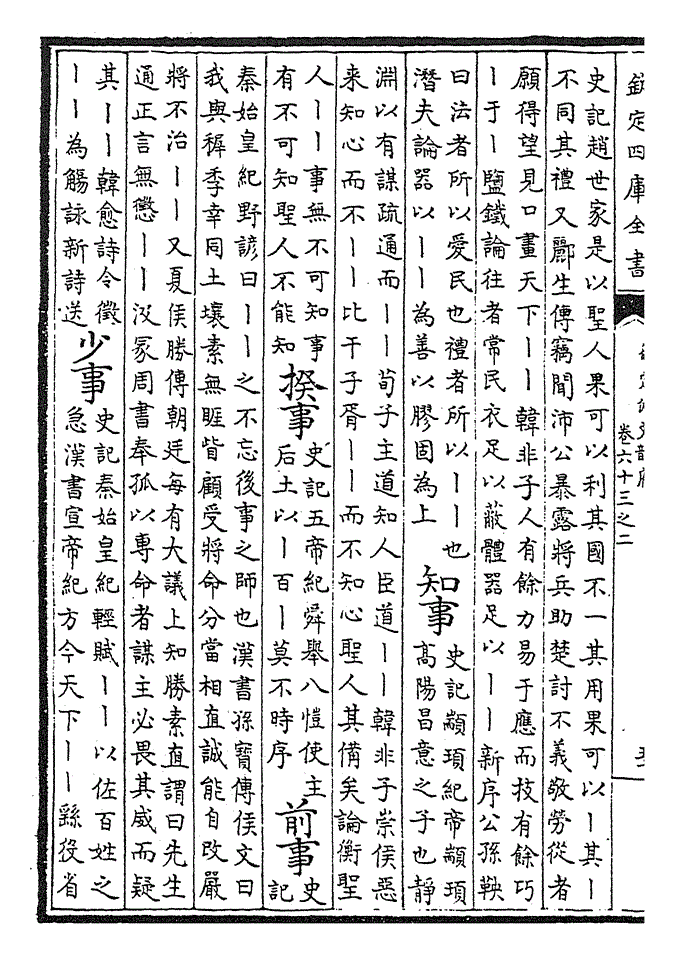 欽定四庫全書
卷六十三之二
史記趙世家是以聖人果可以利其國不一其用果可以丨其丨
不同其禮又酈生傳竊聞沛公暴露將兵助楚討不義敬勞從者
願得望見口畫天下丨丨韓非子人有餘力易于應而技有餘巧
丨于丨鹽鐵論往者常民衣足以蔽體器足以丨丨新序公孫鞅
曰法者所以愛民也禮者所以丨丨也
潛夫論器以丨丨為善以膠固為上
知事
史記顓頊紀帝顓頊
高陽昌意之子也靜
淵以有謀疏通而丨丨荀子主道知人臣道丨丨韓非子崇侯惡
来知心而不丨丨比干子胥丨丨而不知心聖人其備矣論衡聖
人丨丨事無不可知事
有不可知聖人不能知
揆事
史記五帝紀舜舉八愷使主
后土以丨百丨莫不時序
前事
史
記
秦始皇紀野諺曰丨丨之不忘後事之師也漢書孫寶傳侯文曰
我與穉季幸同土壤素無睚眥顧受將命分當相直誠能自改嚴
將不治丨丨又夏侯勝傳朝廷每有大議上知勝素直謂曰先生
通正言無懲丨丨汲冢周書奉孤以專命者謀主必畏其威而疑
其丨丨韓愈詩令徵
丨丨為觴詠新詩送
少事
史記秦始皇紀輕賦丨丨以佐百姓之
急漢書宣帝紀方今天下丨丨繇役省